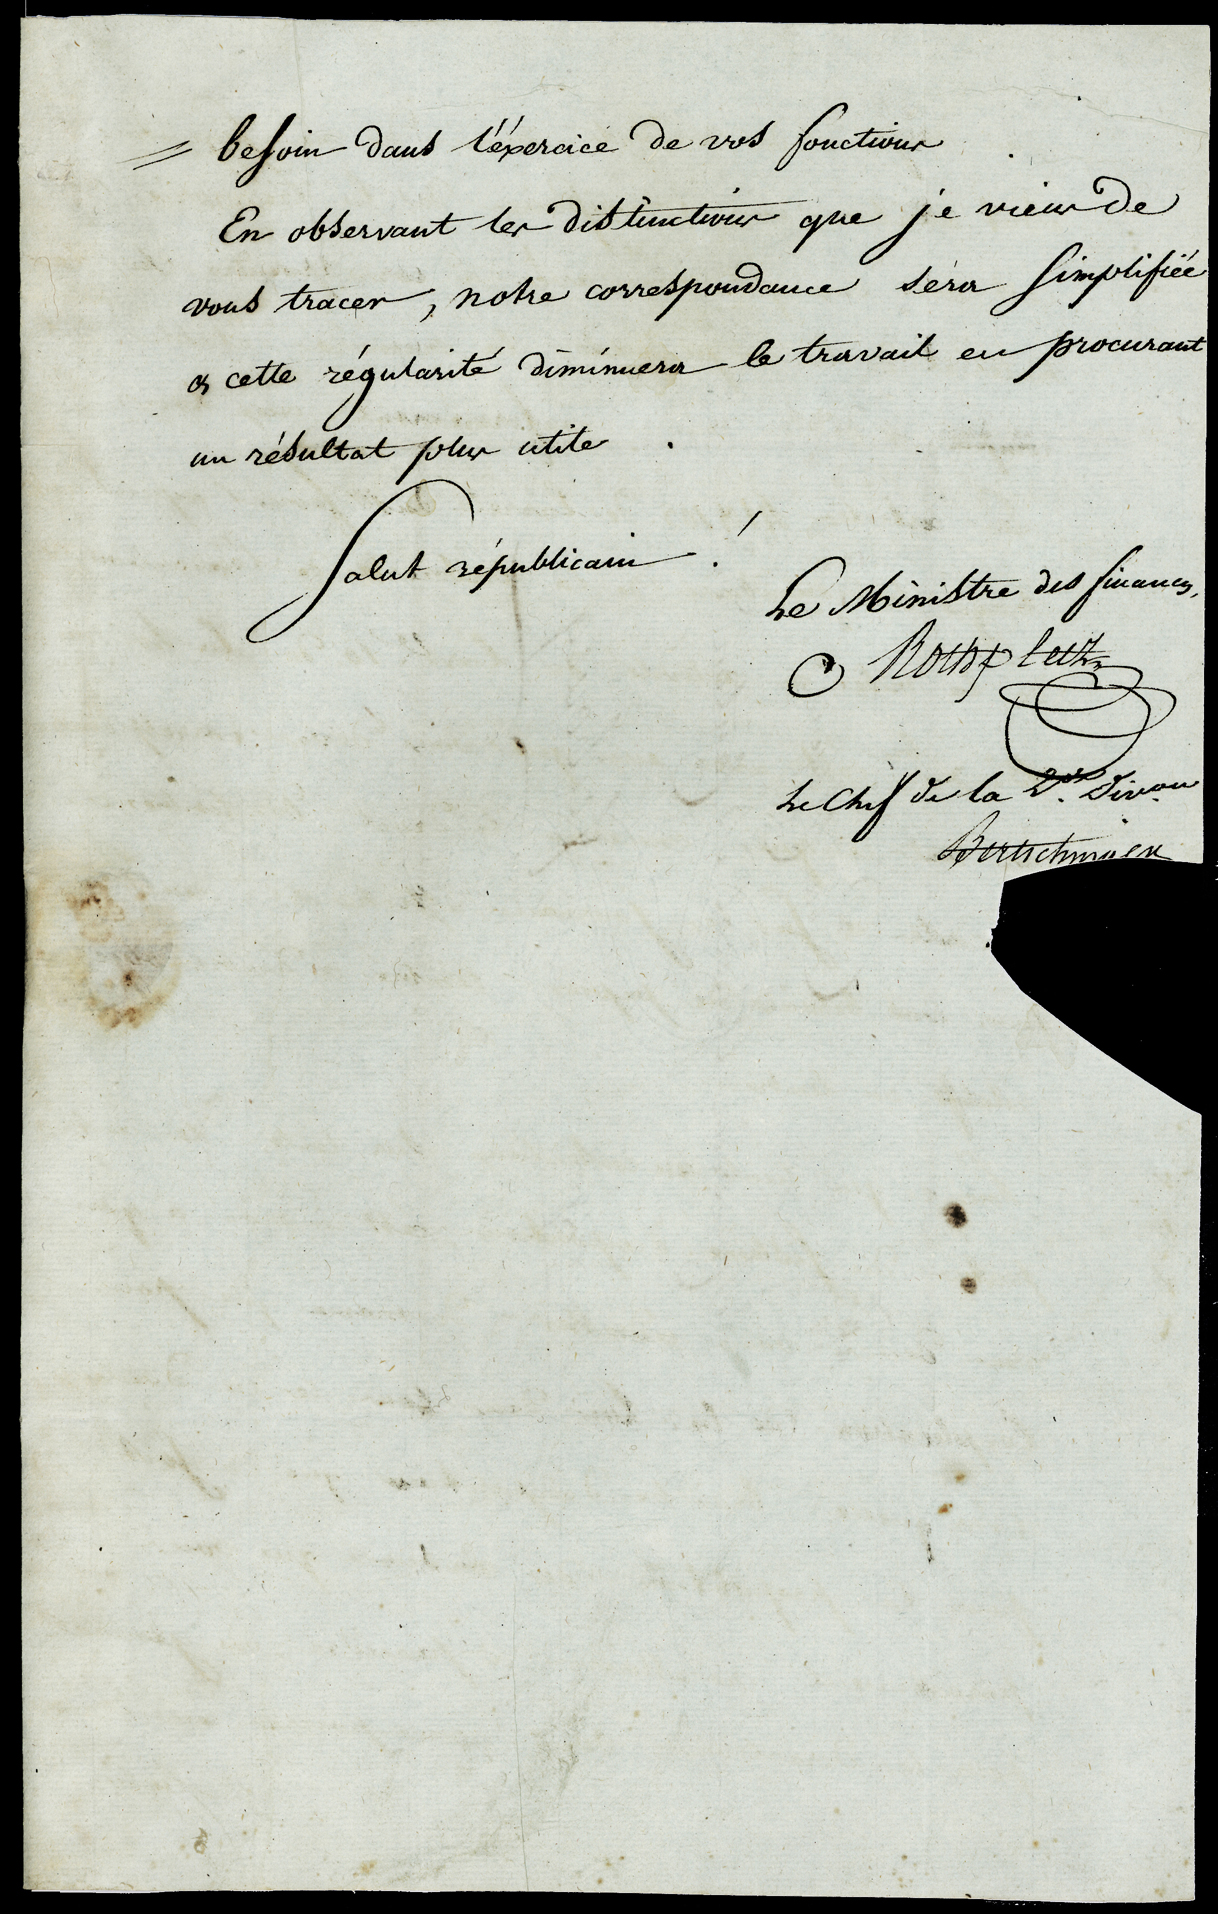 = besoin dans l'éxercice de vos fonctions
En observant les distinctions que je viens de
vous tracer, notre correspondance séra simplifiée
& cette régularité diminuera le travail en procurant
un résultat plus utile.
Salut républicain !
Le Ministre des finances,
Rothpletz
Le Chef de la 2de. Divon